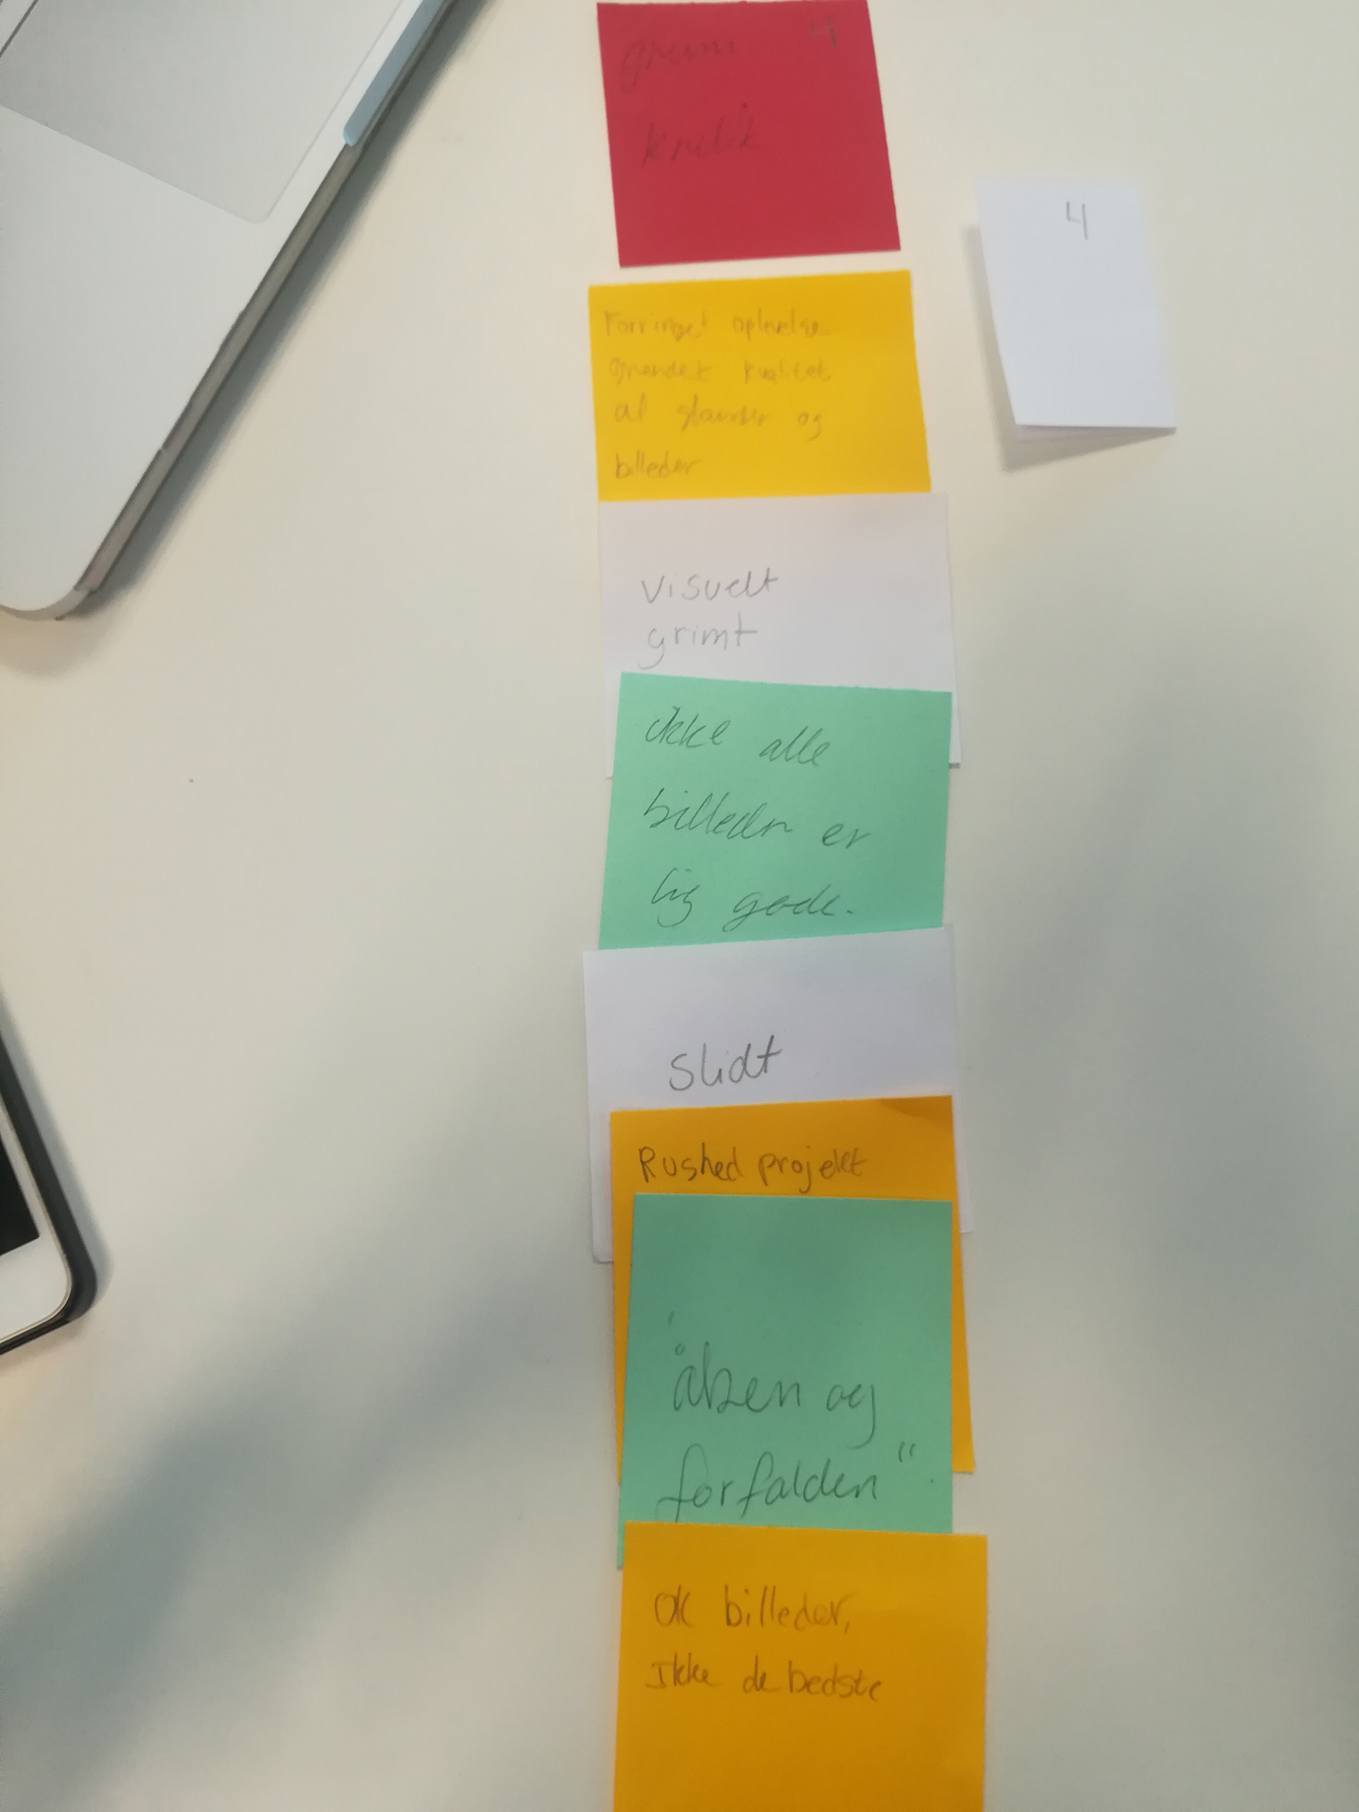 4
kritik
4
Forringet oplevelse
grundet kvalitet
af og
billeder
visuelt
grimt
ikke alle
billeder er
lig gode.
Slidt
Rushed projekt
"åben og
forfalden".
OK billeder,
Ikke de bedste